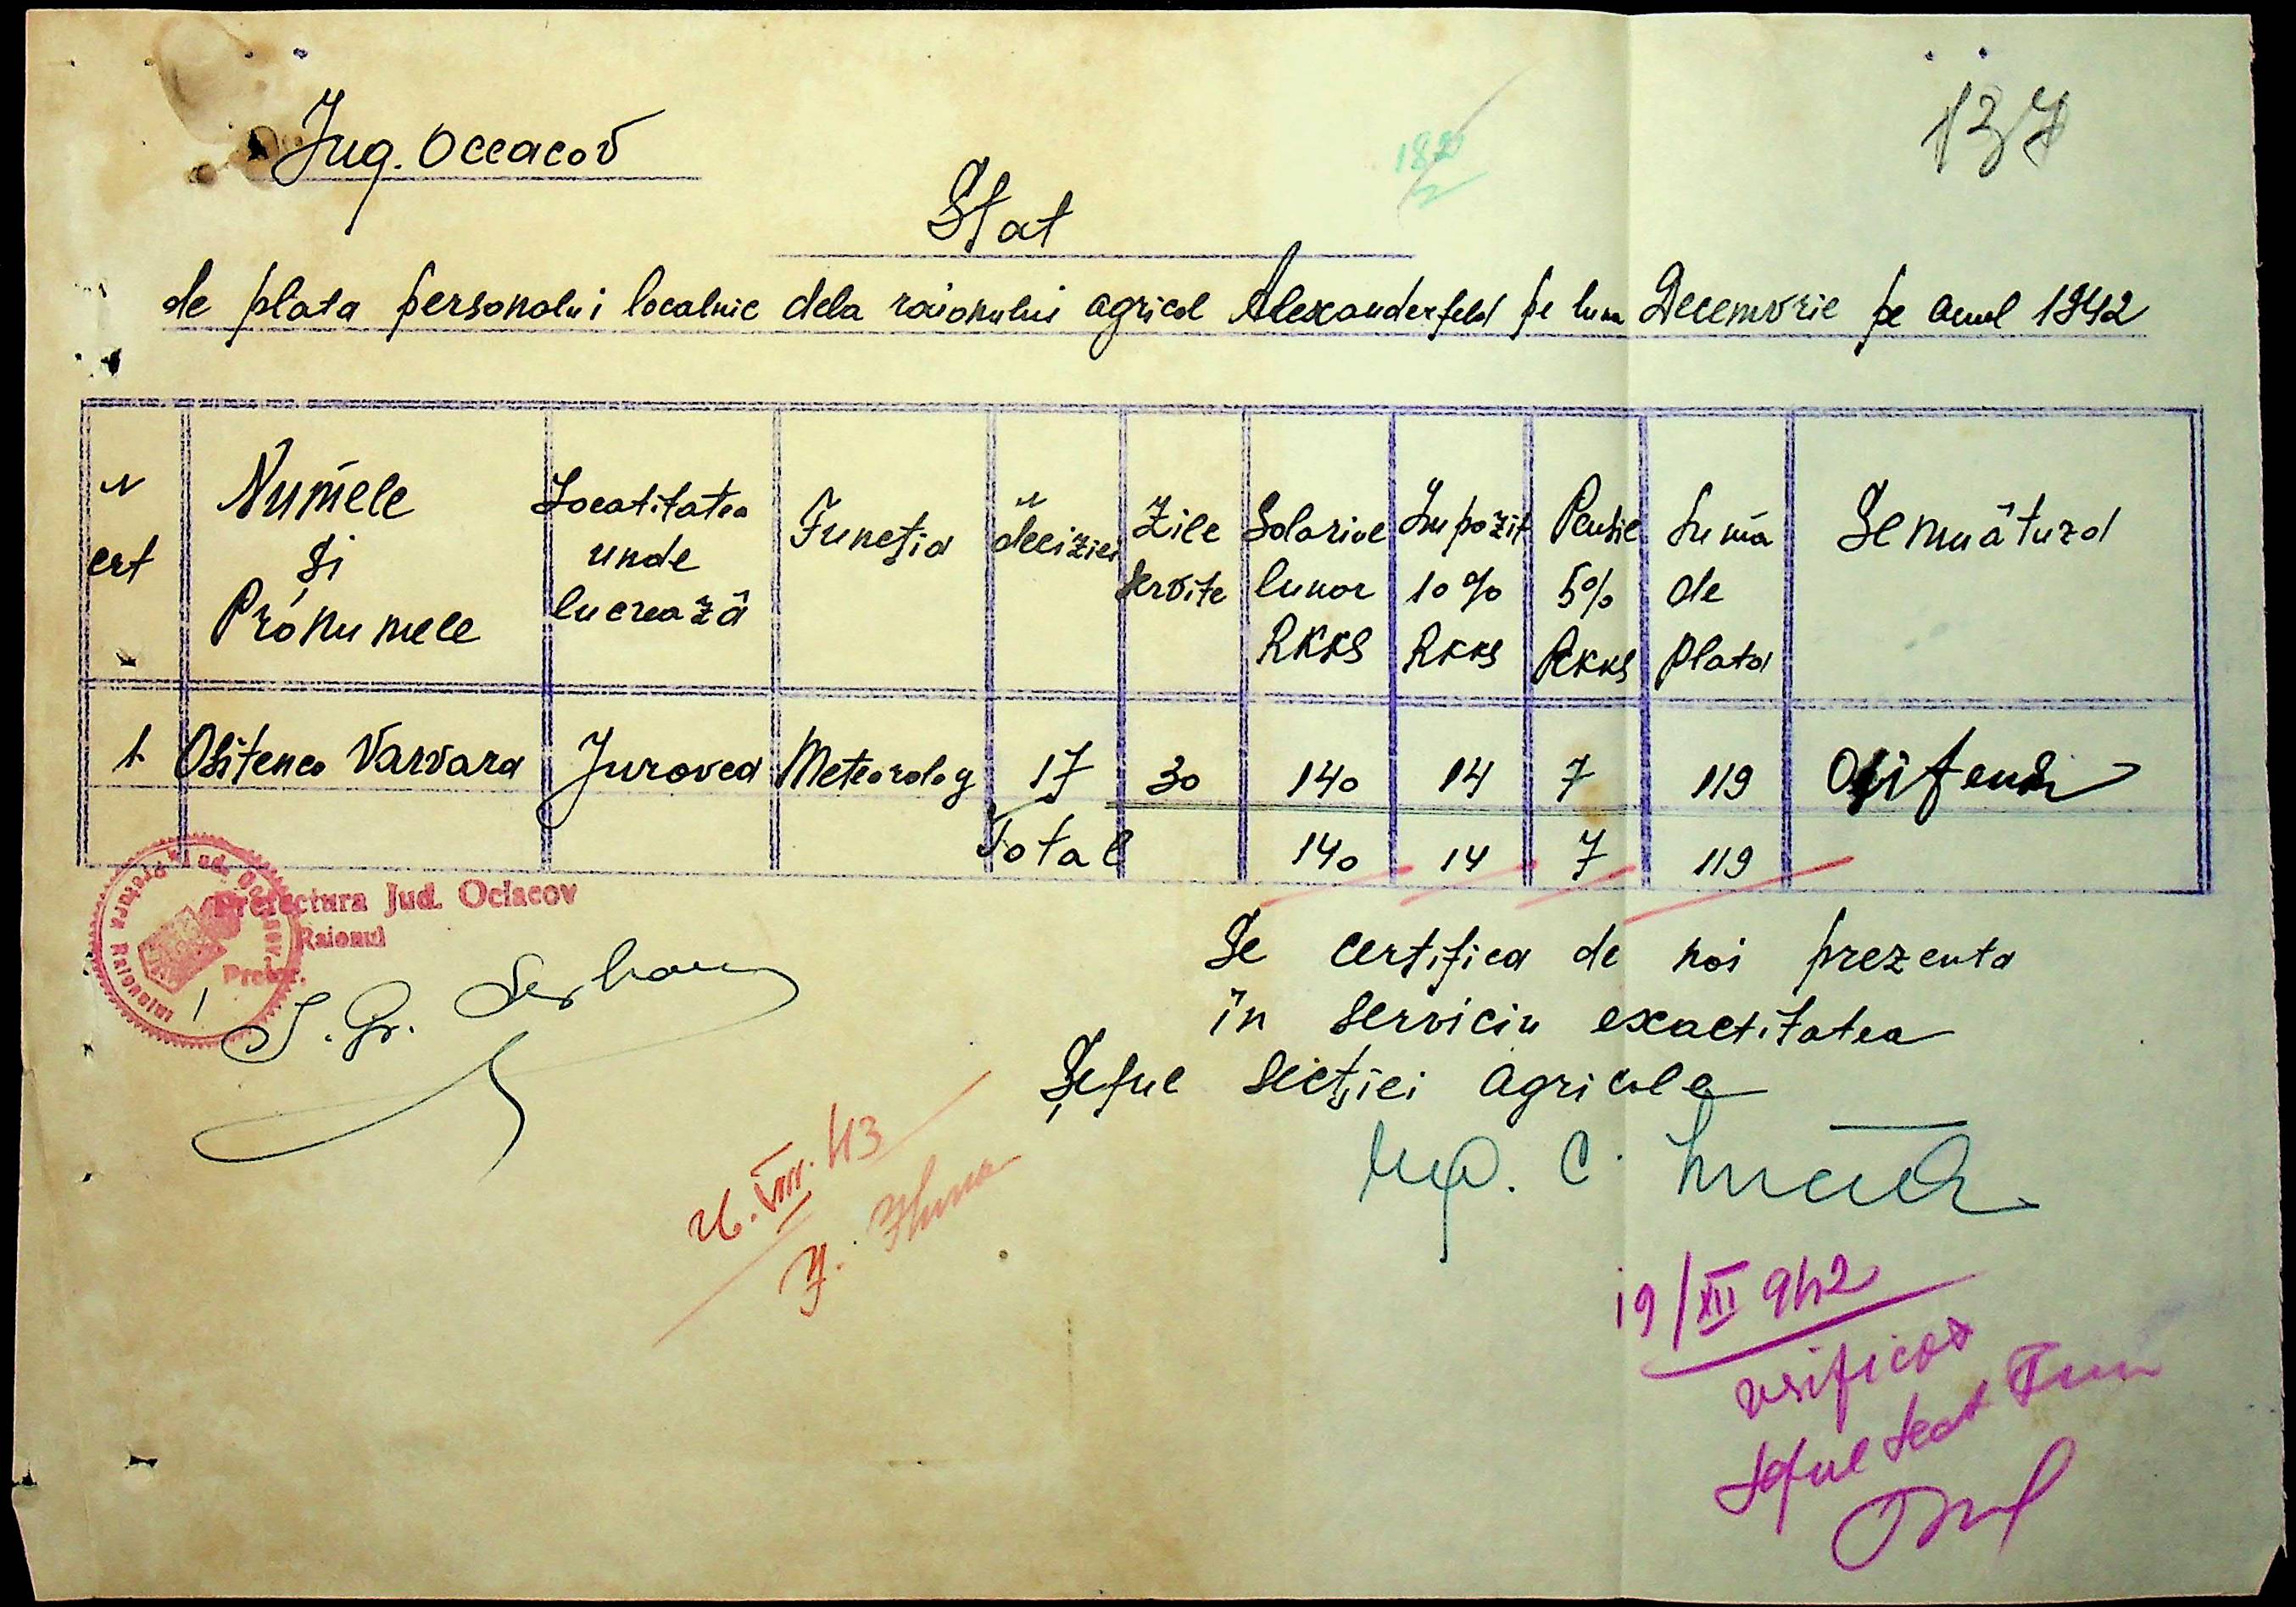 Jug. Oceacov
137
Stat
de plata personalui localnic dela raionului agricol Alexanderfeld pe luna Decemvrie pe anul 1942
N crt
Numele și Pronumele
Localitatea unde lucrează
Funcția
N deciziei
Zile servite
Solariul lunar RKKS
Impozit 10% RKKS
Pensie 5% RKKS
Suma de plata
Semnătura
1. Ositenco Varvara Jurovca Meteorolog 17 30 140 14 7 119
Total 140 14 7 119
Prefectura Jud. Ociacov
Raionul
Pretor.
Se certifica de noi prezenta
în serviciu exactitatea
Șeful secției agricole
26.VIII.43
19/XII 942
verificat
Seful Sect